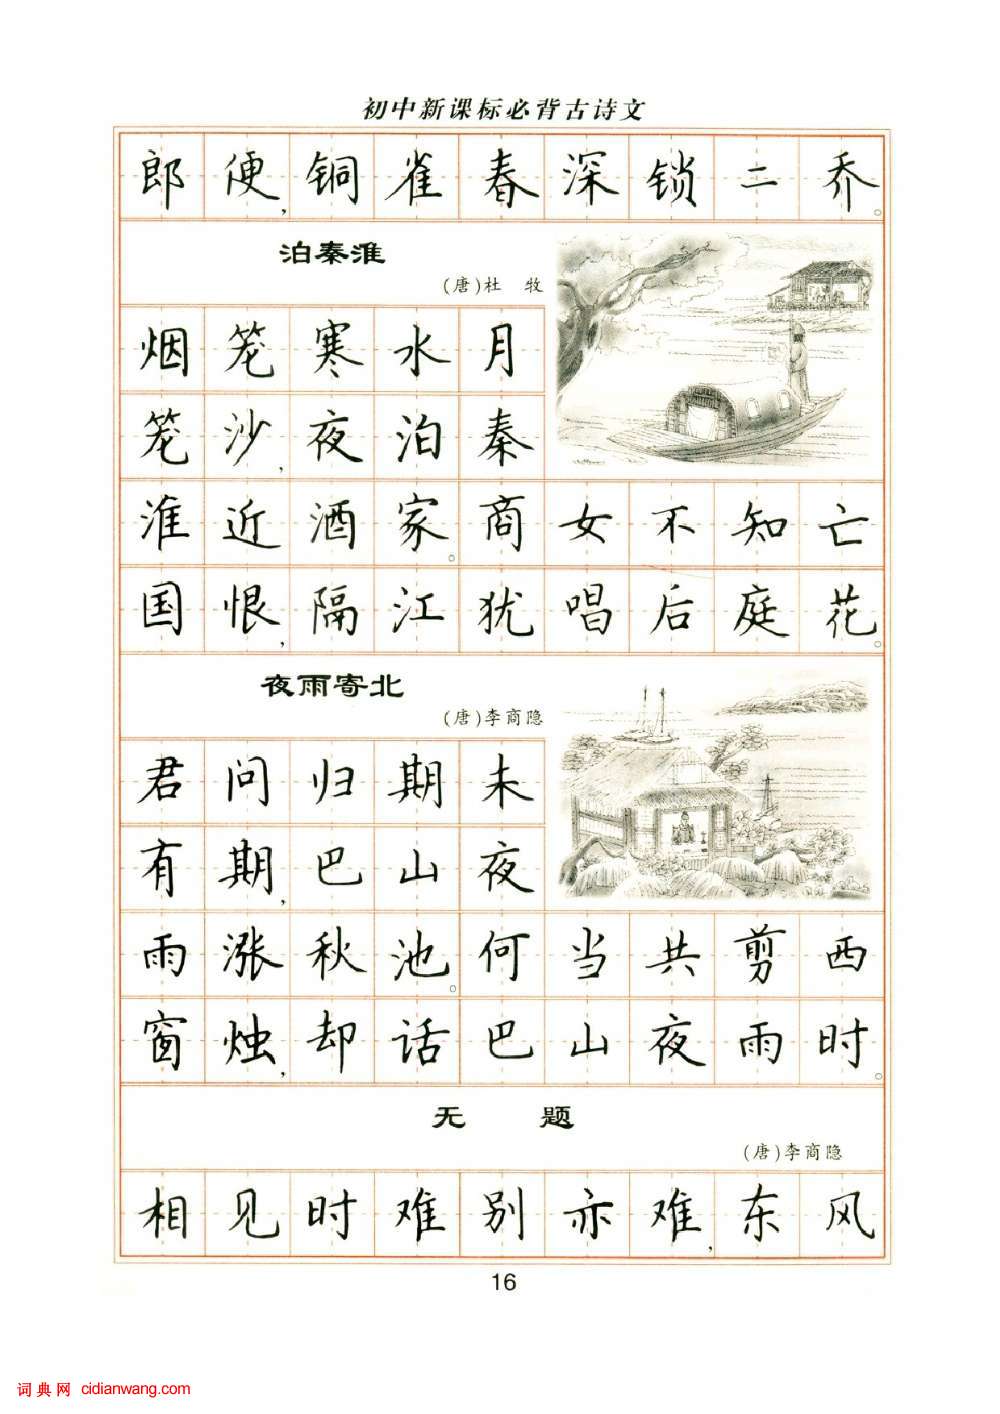 初中新课标必背古诗文
郎便，铜雀春深锁二乔。
泊秦淮
(唐)杜 牧
烟笼寒水月
笼沙，夜泊秦
淮近酒家。商女不知亡
国恨，隔江犹唱后庭花。
夜雨寄北
(唐)李商隐
君问归期未
有期，巴山夜
雨涨秋池。何当共剪西
窗烛，却话巴山夜雨时。
无 题
(唐)李商隐
相见时难别亦难，东风
16
词典网 cidianwang.com